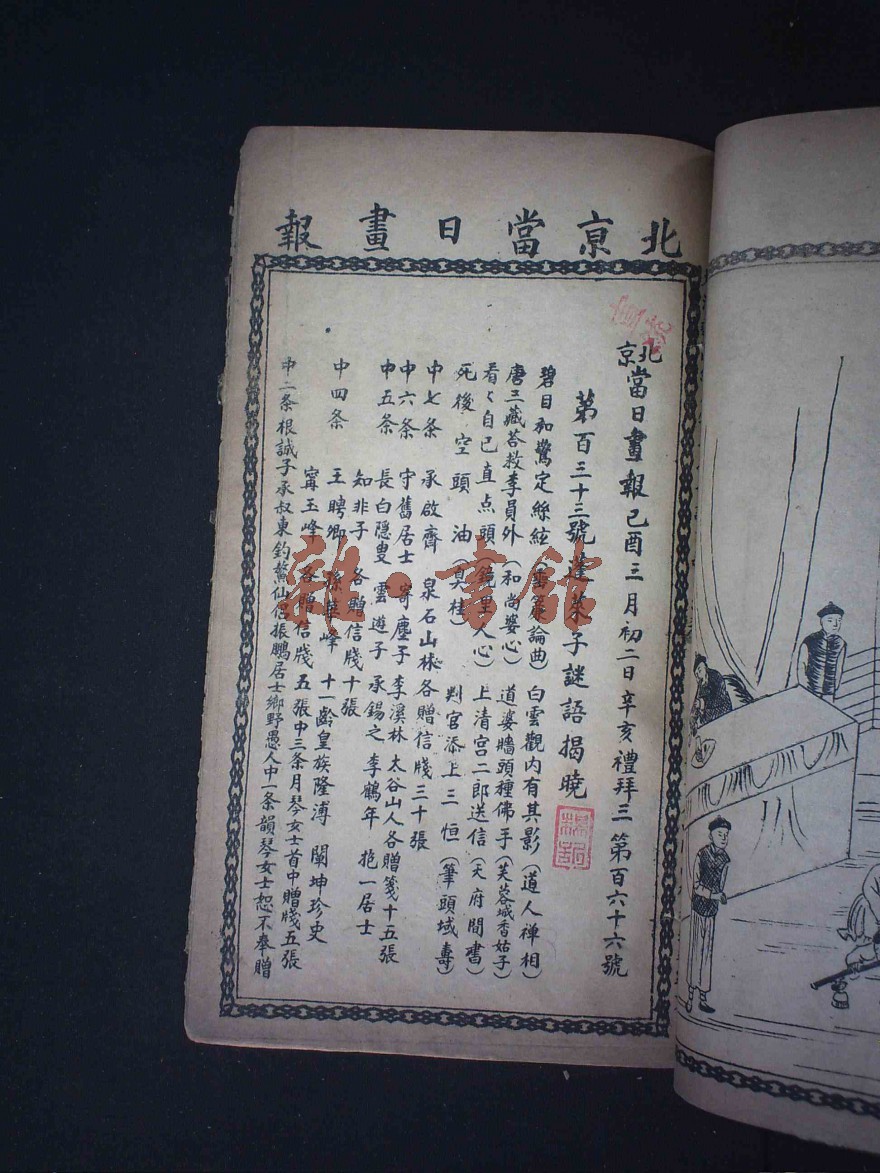 北京當日畫報
北京當日畫報己酉三月初二日辛亥禮拜三第百六十六號
第百三十三號蓬萊子謎語揭曉
碧目和驚定絲絃 論曲）白雲觀內有其影（道人禅相）
唐三藏荅救李員外（和尚婆心）道婆牆頭種佛手（芙蓉城香姑子）
看く自己直点頭（鏡里人心）上清宮二郎送信（天府間書）
死後空頭油（ 桂）判官添上三恒（筆頭域壽）
中七条 承啟齊 泉石山 各贈信牋三十張
中六条 守舊居士 寄塵子 李溪林 太谷山人各贈箋十五張
中五条 長白隠叟 雲遊子 承錫之 李鶴年 抱一居士
知非子 各贈信牋十張
中四条 王聘卿 孫華峰 十一齡皇族隆溥 闡坤珍史
甯玉峰 各贈信牋五張中三条月琴女士首中贈牋五張
中二条根誠子承叔東釣鰲仙侣振鵬居士鄉野愚人中一条韻琴女士恕不奉贈
雜·書館